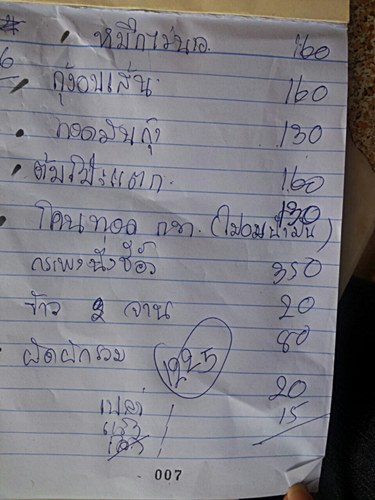 หมึกมะนาว 160
กุ้งอบเส้น 160
ทอดมันกุ้ง 130
ต้มโป๊ะแตก 160
130
(ไม่อมน้ำมัน)
กะพงนึ่งซีอิ๊ว 350
ข้าว 2 จาน 20
80
ผัดผักรวม 1225
เปล่า 1 20
15
007